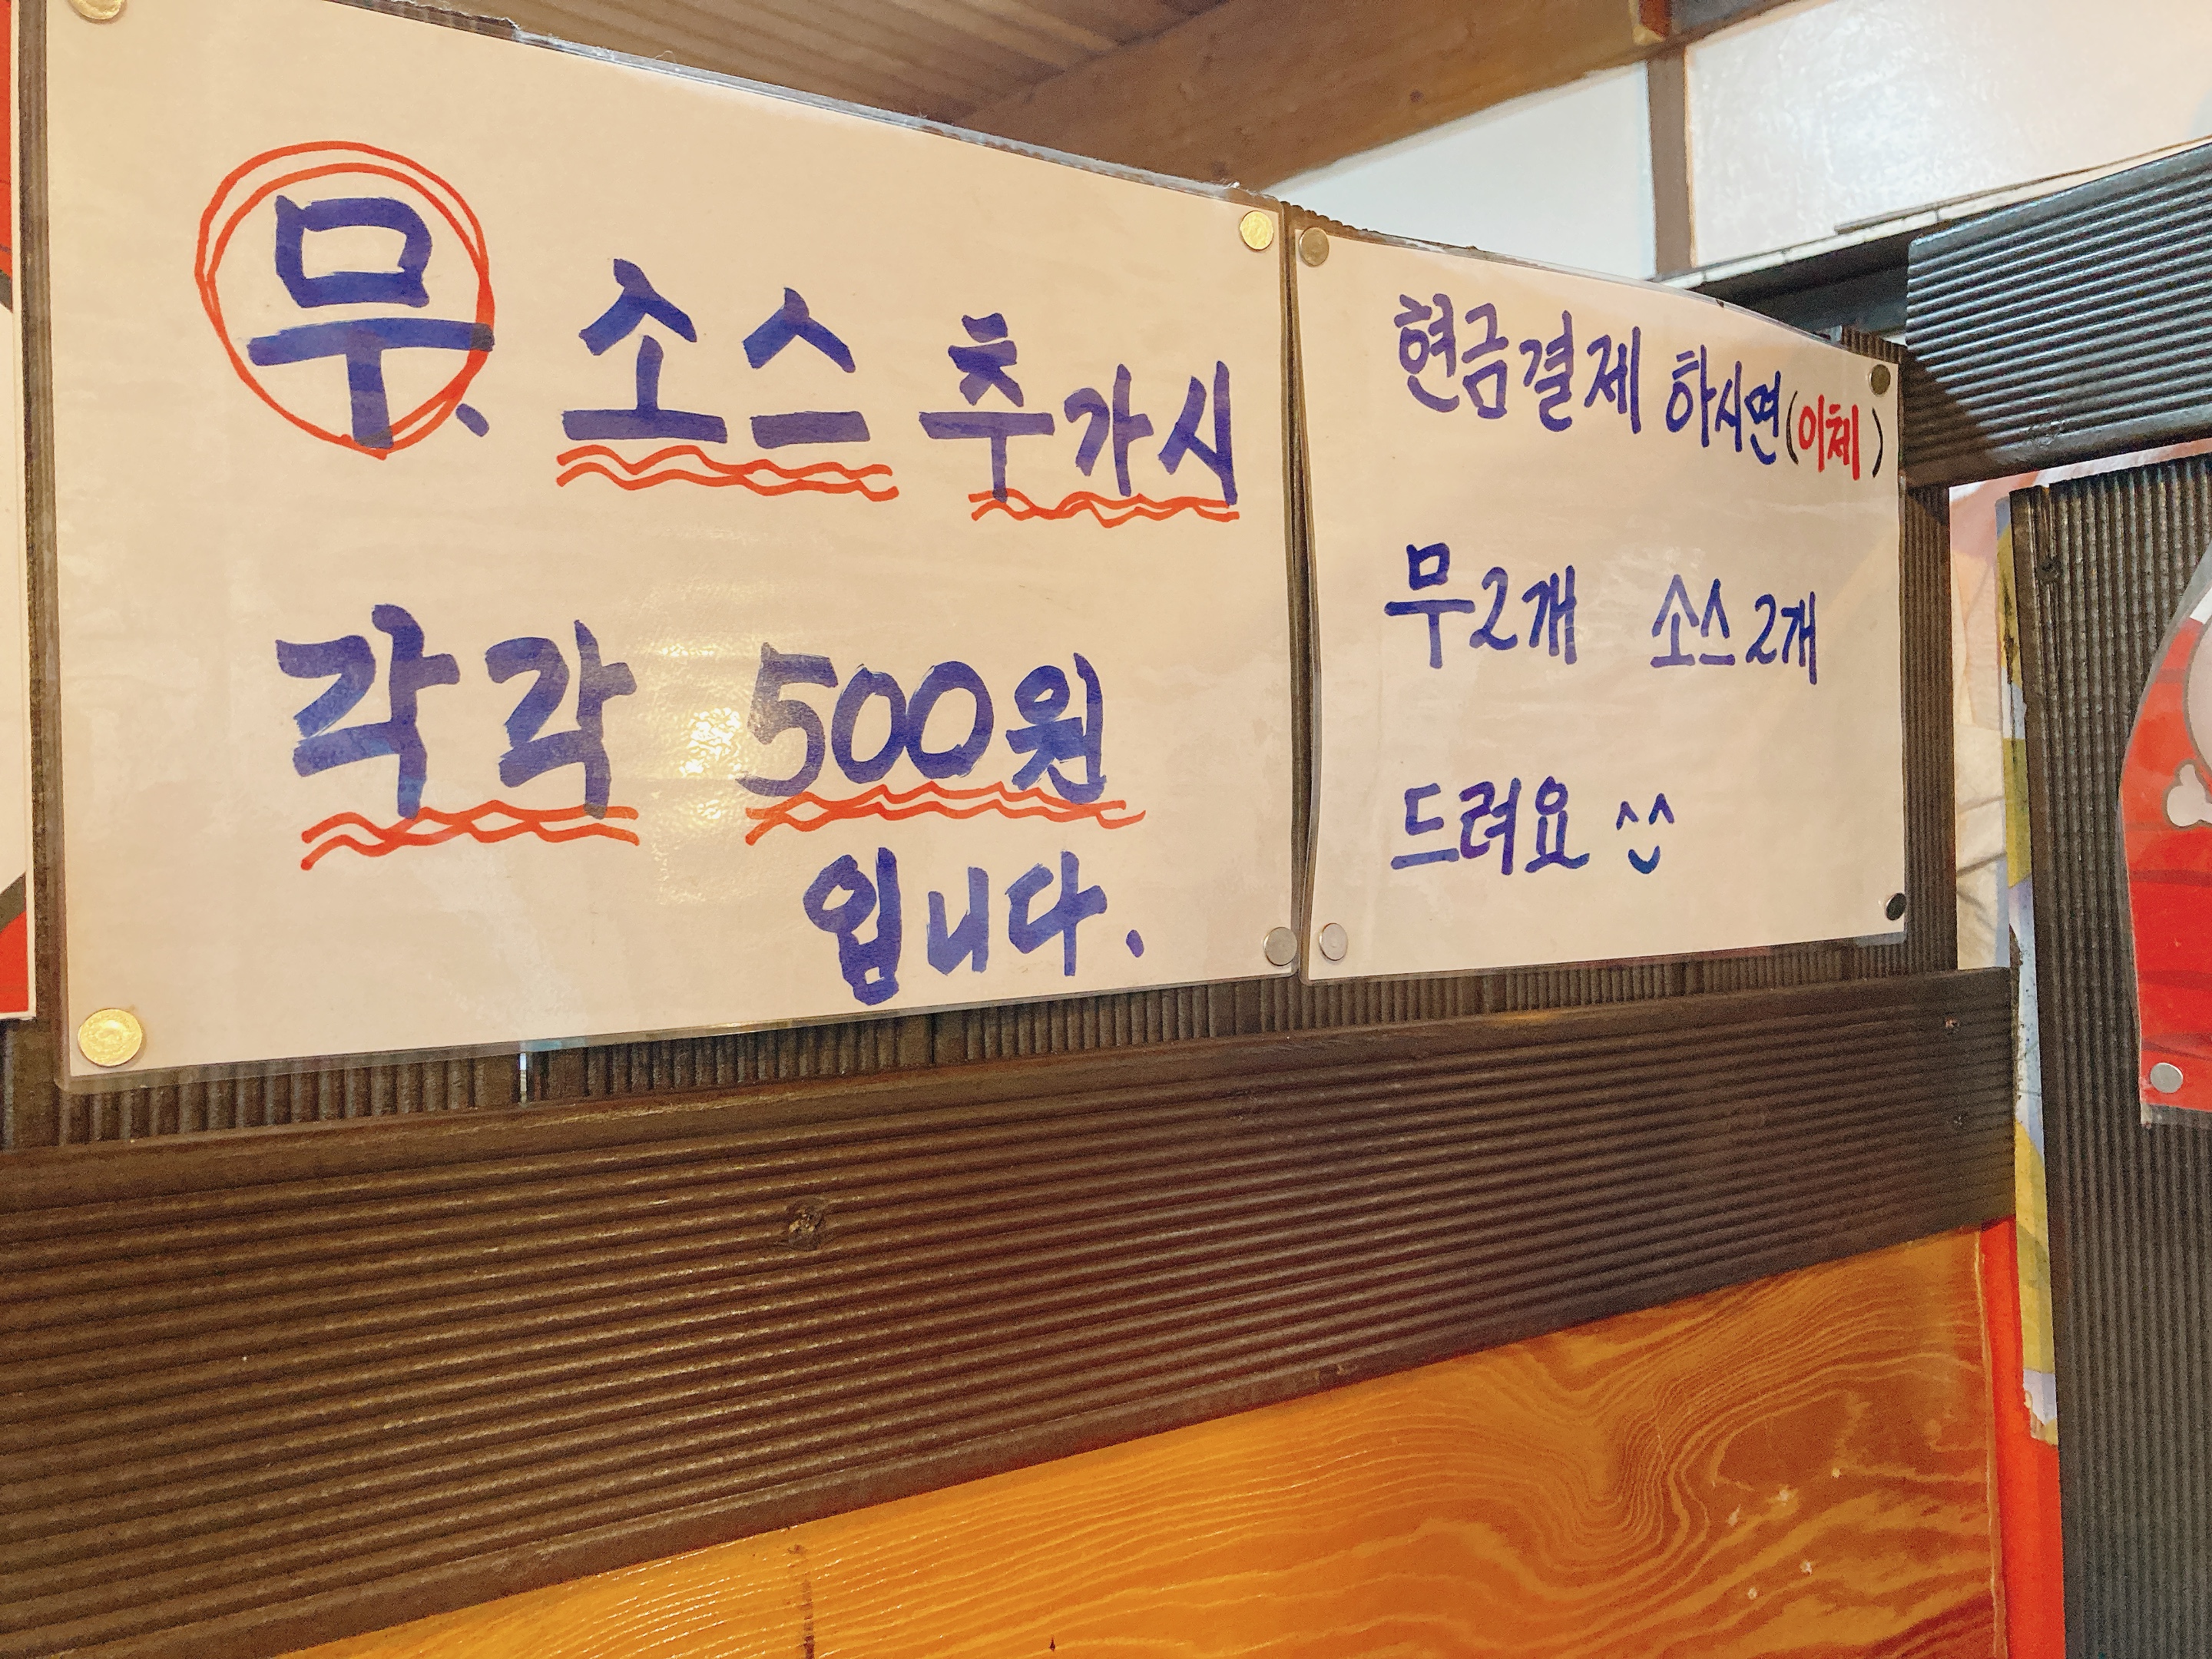 무、소스 추가시
각각 500원
입니다.
현금결제 하시면(이체)
무2개 소스2개
드려요 ^^